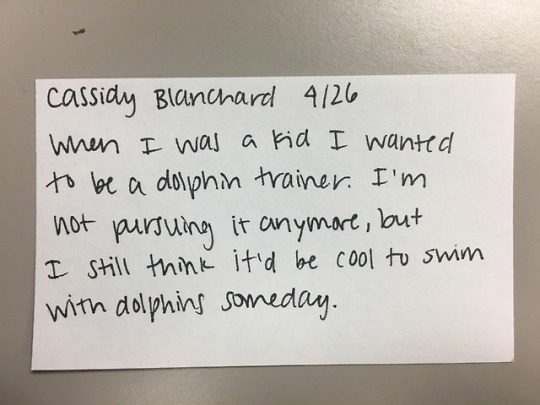 Cassidy Blanchard 4/26
When I was a kid I wanted
to be a dolphin trainer. I'm
not pursuing it anymore, but
I still think it'd be cool to swim
with dolphins someday.